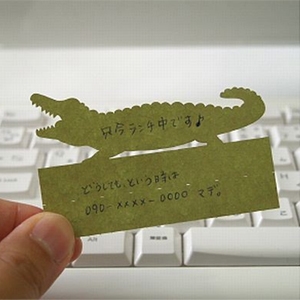 只今ランチ中です♪
どうしても、という時は
090-xxxx-0000 マデ。